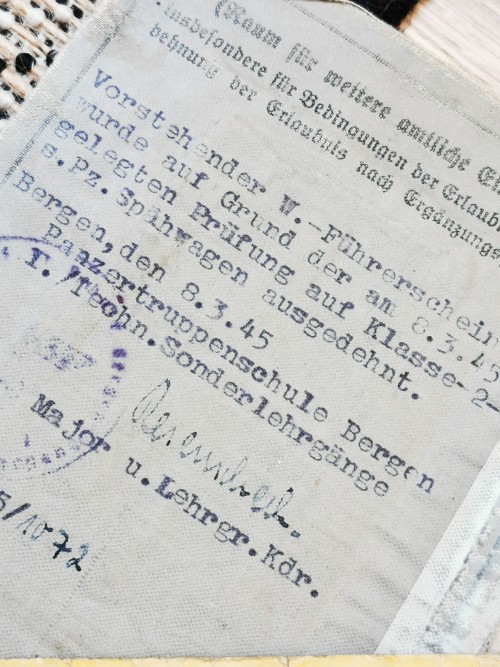 (Raum für weitere amtliche
insbesondere für Bedingungen der Erlaub
dehnung der Erlaubnis nach Ergänzungs
Vorstehender W.-Führerschein
wurde auf Grund der am 8.3.45
gelegten Prüfung auf Klasse-2-
s.Pz.Spähwagen ausgedehnt.
Bergen,den 8.3.45
Panzertruppenschule Bergen
T./Techn.Sonderlehrgänge
Major
u.Lehrgr.Kdr.
5/1072